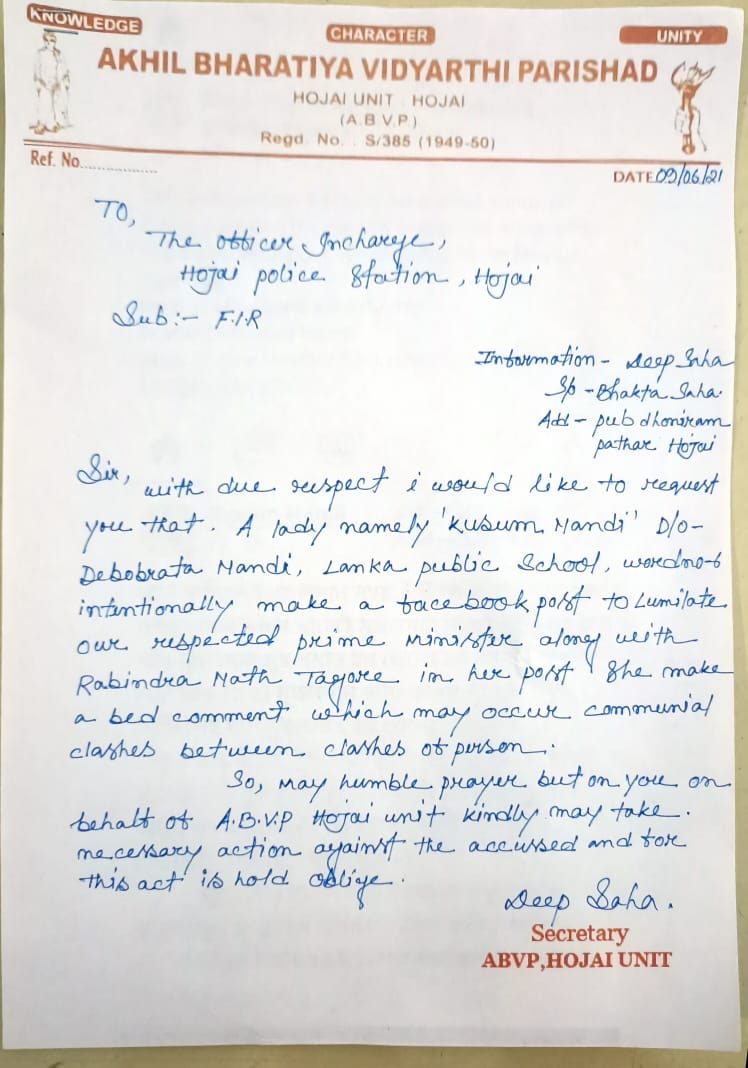 KNOWLEDGE
CHARACTER
UNITY
AKHIL BHARATIYA VIDYARTHI PARISHAD
HOJAI UNIT . HOJAI
(A.B V.P.)
Regd. No. . S/385 (1949-50)
Ref. No..................
DATE 09/06/21
TO,
The officer Incharge,
Hojai police Station, Hojai
Sub:- F.I.R
Information - Deep Saha
S/o - Bhakta Saha.
Add - pub dhoniram
pathar Hojai
Sir, with due respect i would like to request
you that. A lady namely 'Kusum Nandi' D/o-
Debobrata Nandi, Lanka public School, wordno-6
intentionally make a facebook post to Lumilate
our respected prime minister along with
Rabindra Nath Tagore in her post She make
a bed comment which may occur communial
clashes between clashes of person.
So, may humble prayer but on you on
behalf of A.B.V.P Hojai unit kindly may take.
necessary action against the accussed and for
this act is hold oblige.
Deep Saha.
Secretary
ABVP,HOJAI UNIT